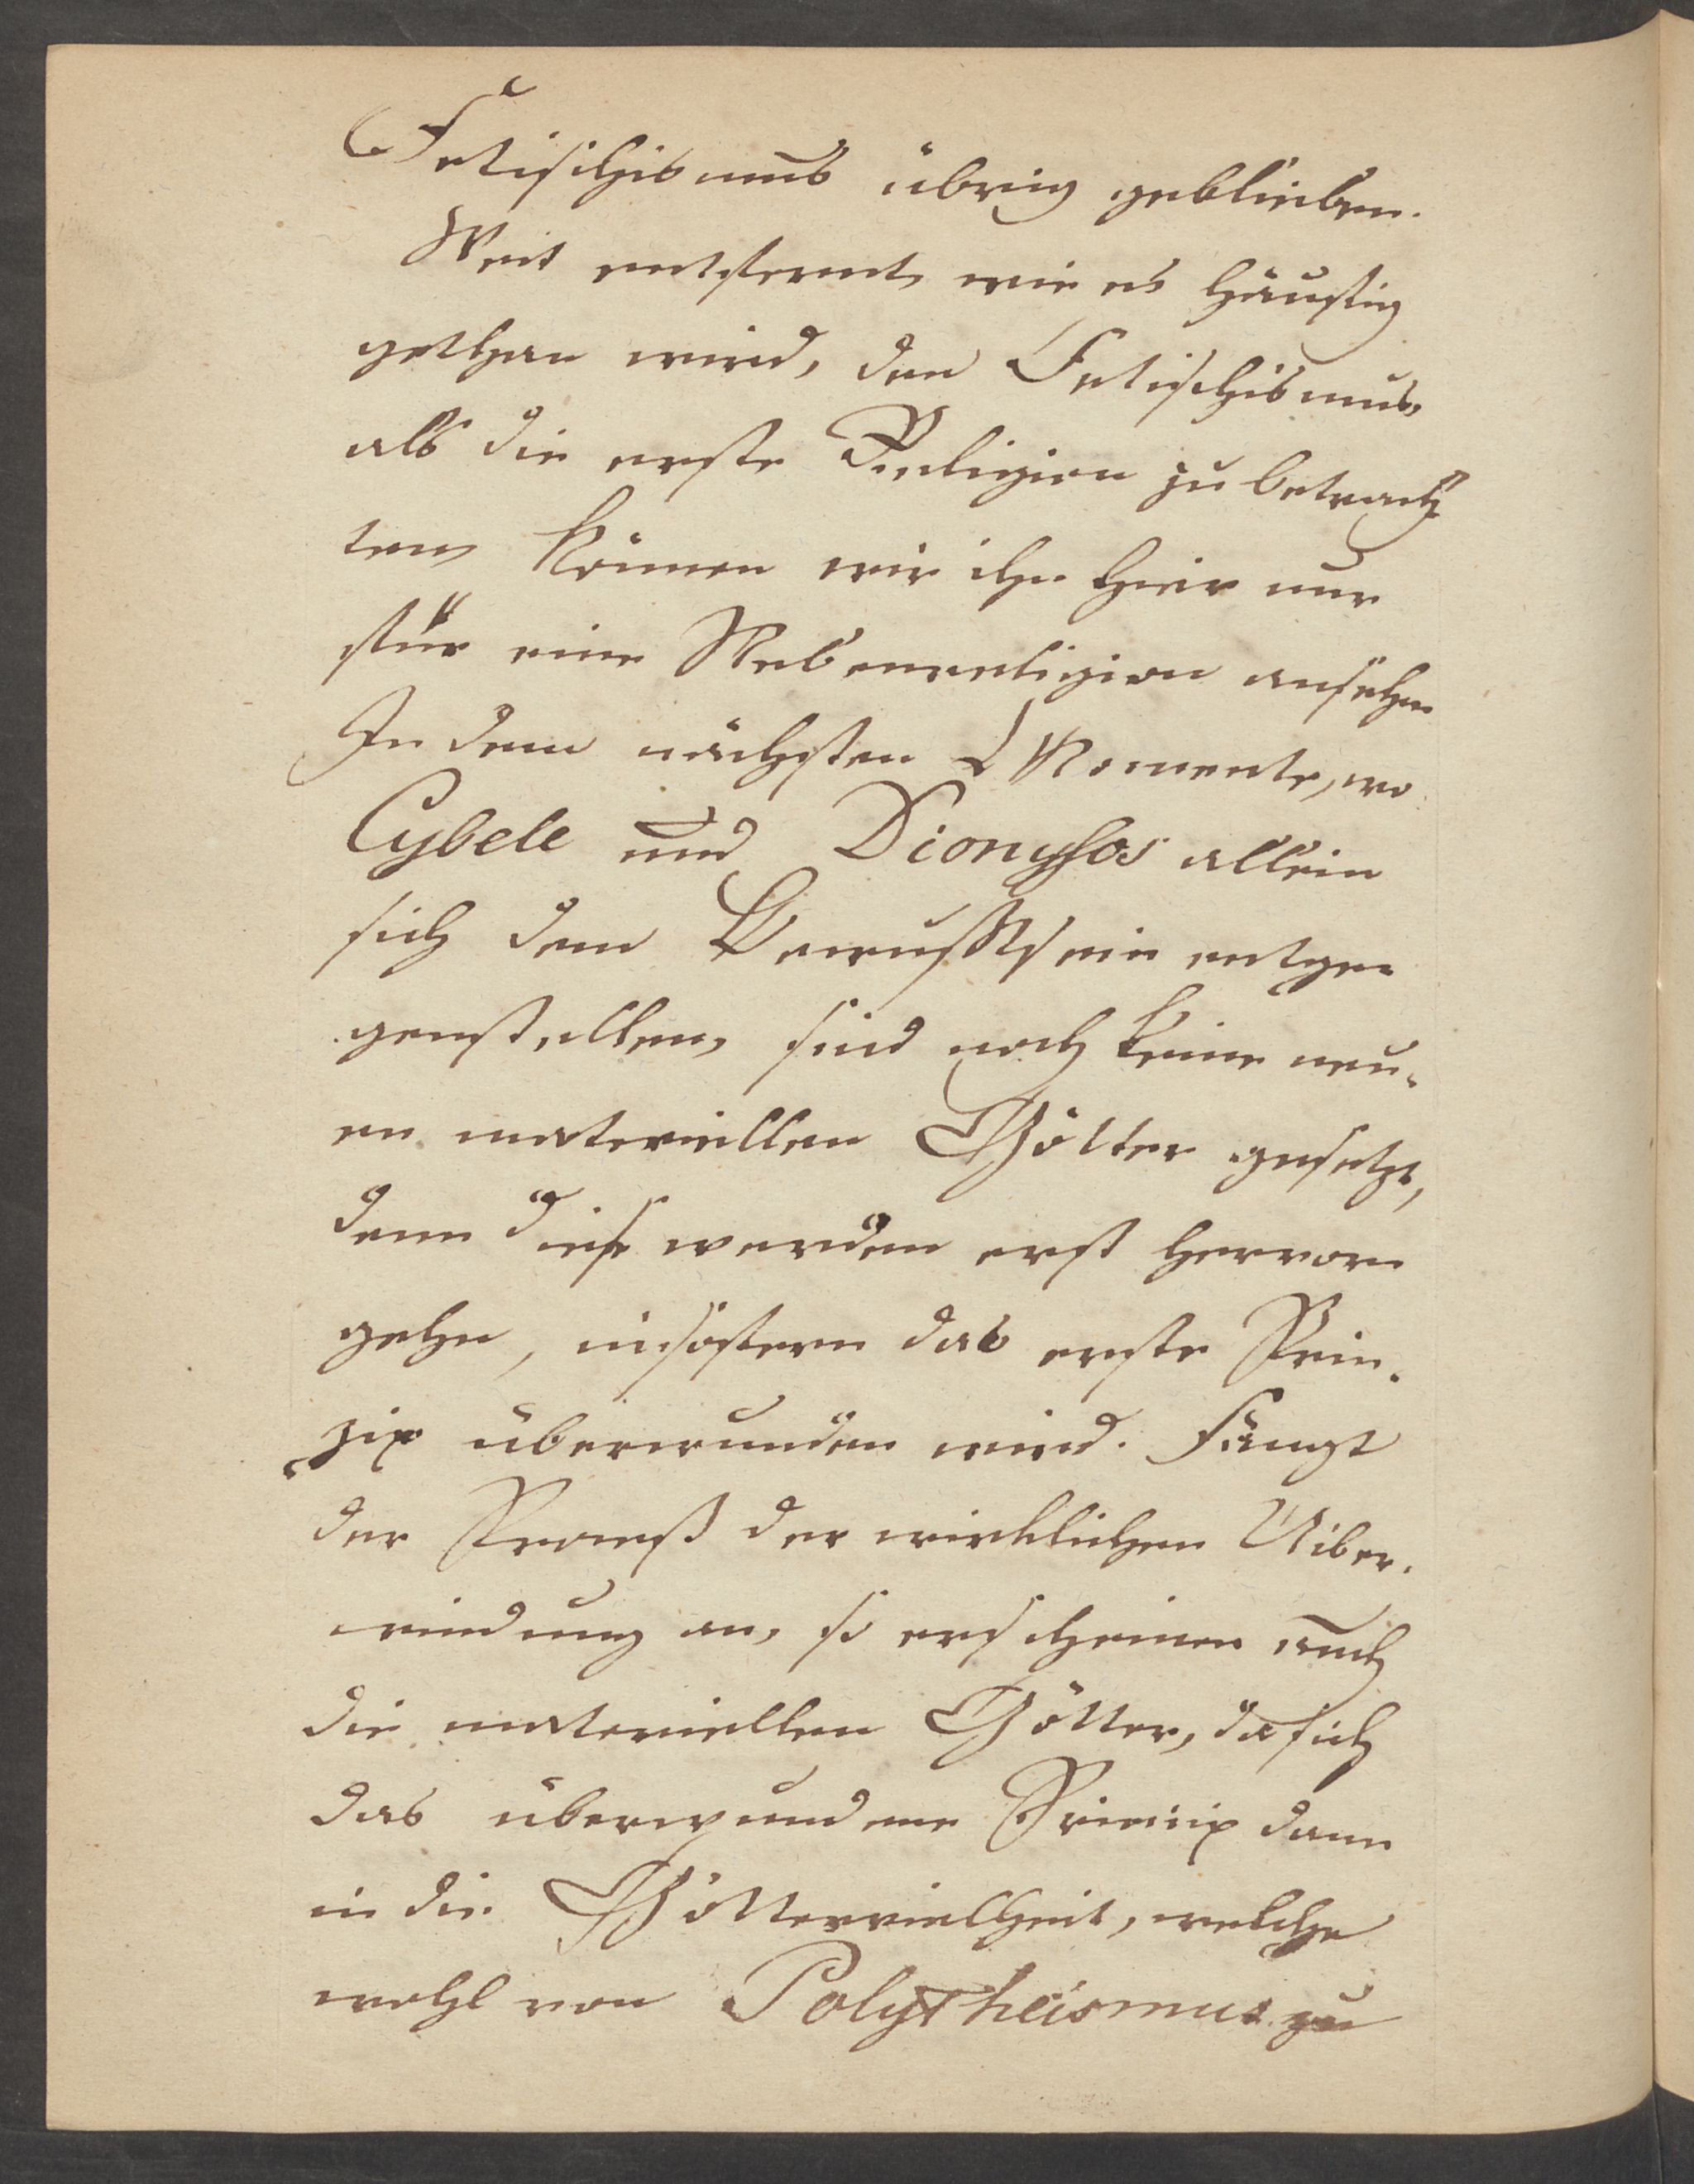 Fetischismus übrig geblieben.
Weit entfernt, wie es häufig
gethan wird, den Fetischismus,
als die erste Religion zu betrach
ten, können wir ihn hier nur
für eine Nebenreligion ansehen
In dem nächsten Momente, wo
Cybele und Dionysos allein
sich dem Bewußtsein entge-
genstellen, sind noch keine neu-
en materiellen Götter gesetzt,
denn diese werden erst hervor-
gehn, insofern das erste Prin-
zip überwunden wird. Fängt
der Proceß der wirklichen Uiber-
windung an, so erscheinen auch
die materiellen Götter, da sich
das überwundene Princip dann
in die Göttervielheit, welche
wohl von Polytheismus zu